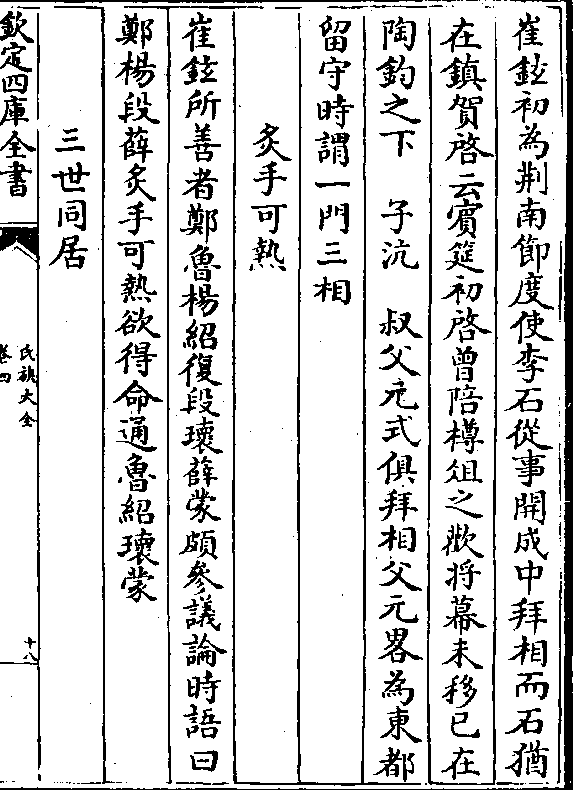 崔鉉初為荆南節度使李石從事開成中拜相而石猶
在鎮賀啓云賔筵初啓曾陪樽俎之歡将幕未移已在
陶鈞之下　子沆　叔父元式俱拜相父元畧為東都
留守時謂一門三相
炙手可熱
崔鉉所善者鄭魯楊紹復段瓌薛蒙頗參議論時語曰
鄭楊段薛炙手可熱欲得命通魯紹瓌蒙
三世同居
欽定四庫全書
氏族大全
卷四
十八